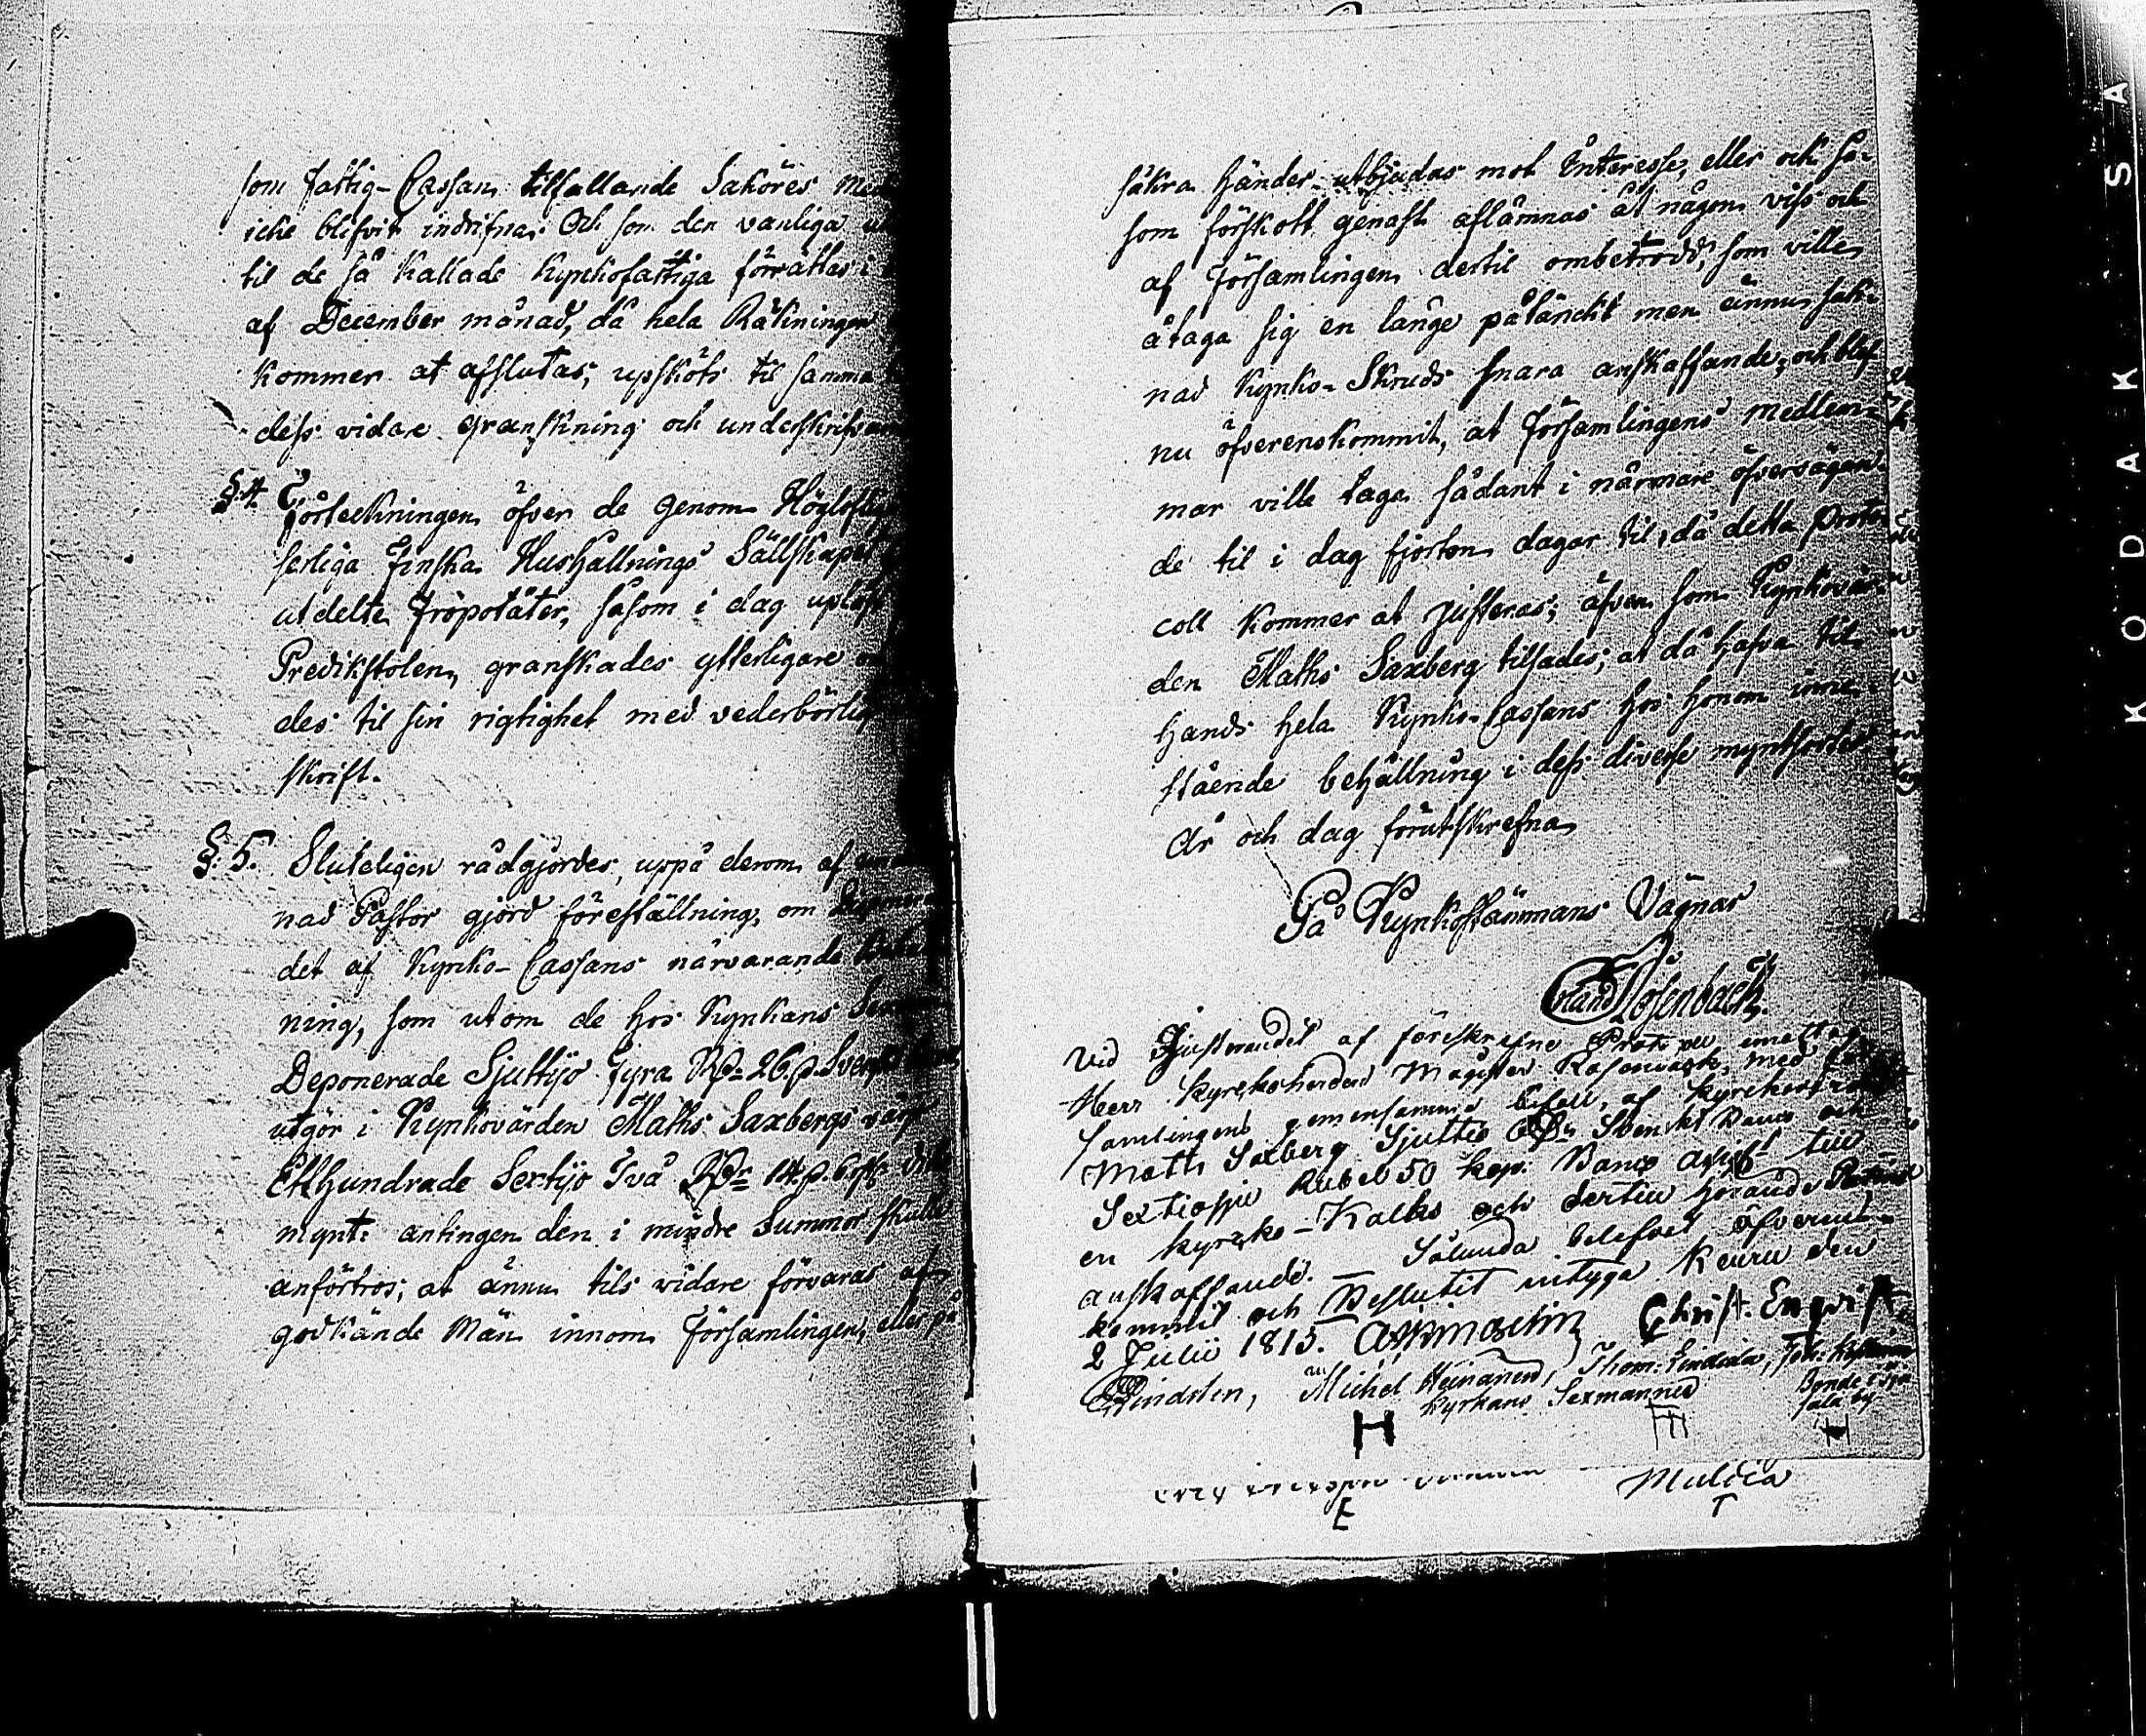 som Fattig-Cassan tillfallande Saköres
icke blifvit indrifna. Och som den vanliga
til de så kallade Kyrkofattiga förrättas i
af December månad, då hela Räkningen
kommer at afslutas; upsköts til samma
dess vidare granskning och underskrifvan
§. 4. Förteckningen öfver de genom Höglofl
serliga Finska Hushallnings Sällskapet
utdelte Fröpotäter, såsom i dag upläst
Predikstolen, granskades ytterligare
des til sin rigtighet med vederbörlig
skrift.
§. 5. Sluteligen rådgjordes, uppå derom af
nad Pastor gjord föreställning, om
det af Kyrko-Cassans närvarande
ning, som utom de hos Kyrkans
Deponerade Sjuttijo Fyra Rdr 26 s. Svenskt
utgör i Kyrkovärden Maths Saxbergs värjo
Etthundrade Sextijo Två Rdr 14 s. 6
mynt: antingen den i mindre Summor skulle
anförtros; at ännu tils vidare förvaras af
godkände Män innom Församlingen, eller på
säkra händer utbjudas mot Interesse, eller och så-
som förskott genast aflämnas åt någon viss och
af Församlingen dertil ombetrodd, som ville
åtaga sig en länge påtänckt men ännu sak-
nad Kyrko-Skruds snara anskaffande; och blef
nu öfverenskommit, at Församlingens medlem-
mar ville taga sådant i närmare öfvervägan-
de til i dag fjorton dagar til, då detta Proto-
coll kommer at justeras; äfven som Kyrkovär-
den Maths Saxberg tilsades; at då hafva til
hands hela Kyrko-Cassans hos honom inne-
stående behållning i dess diverse myntsorter
År och dag förutskrefna
På Kyrkostämmans Vägnar
Erland Rosenback.
Vid Justerandet af föreskrefne Protocoll emottog
Herr Kyrckoherden Magister Rosenback, med För-
samlingens gemensamma bifall, af Kyrckovärden
Matts Saxberg Sjuttio Rdr Svenskt Banco och
Sextiosju Rubel 50 kop: Banco Assig: till
en kyrcko-Kalks och dertill hörande
anskaffande. — Sålunda blefvet öfverens-
kommit och Beslutit intyga Keuru den
2 Julii 1815. Christ: Enqvist
Lindsten, Michel Heinänen, Thom:
Kyrkans Sexmanner Bonde i
by
H H
Multia
E T